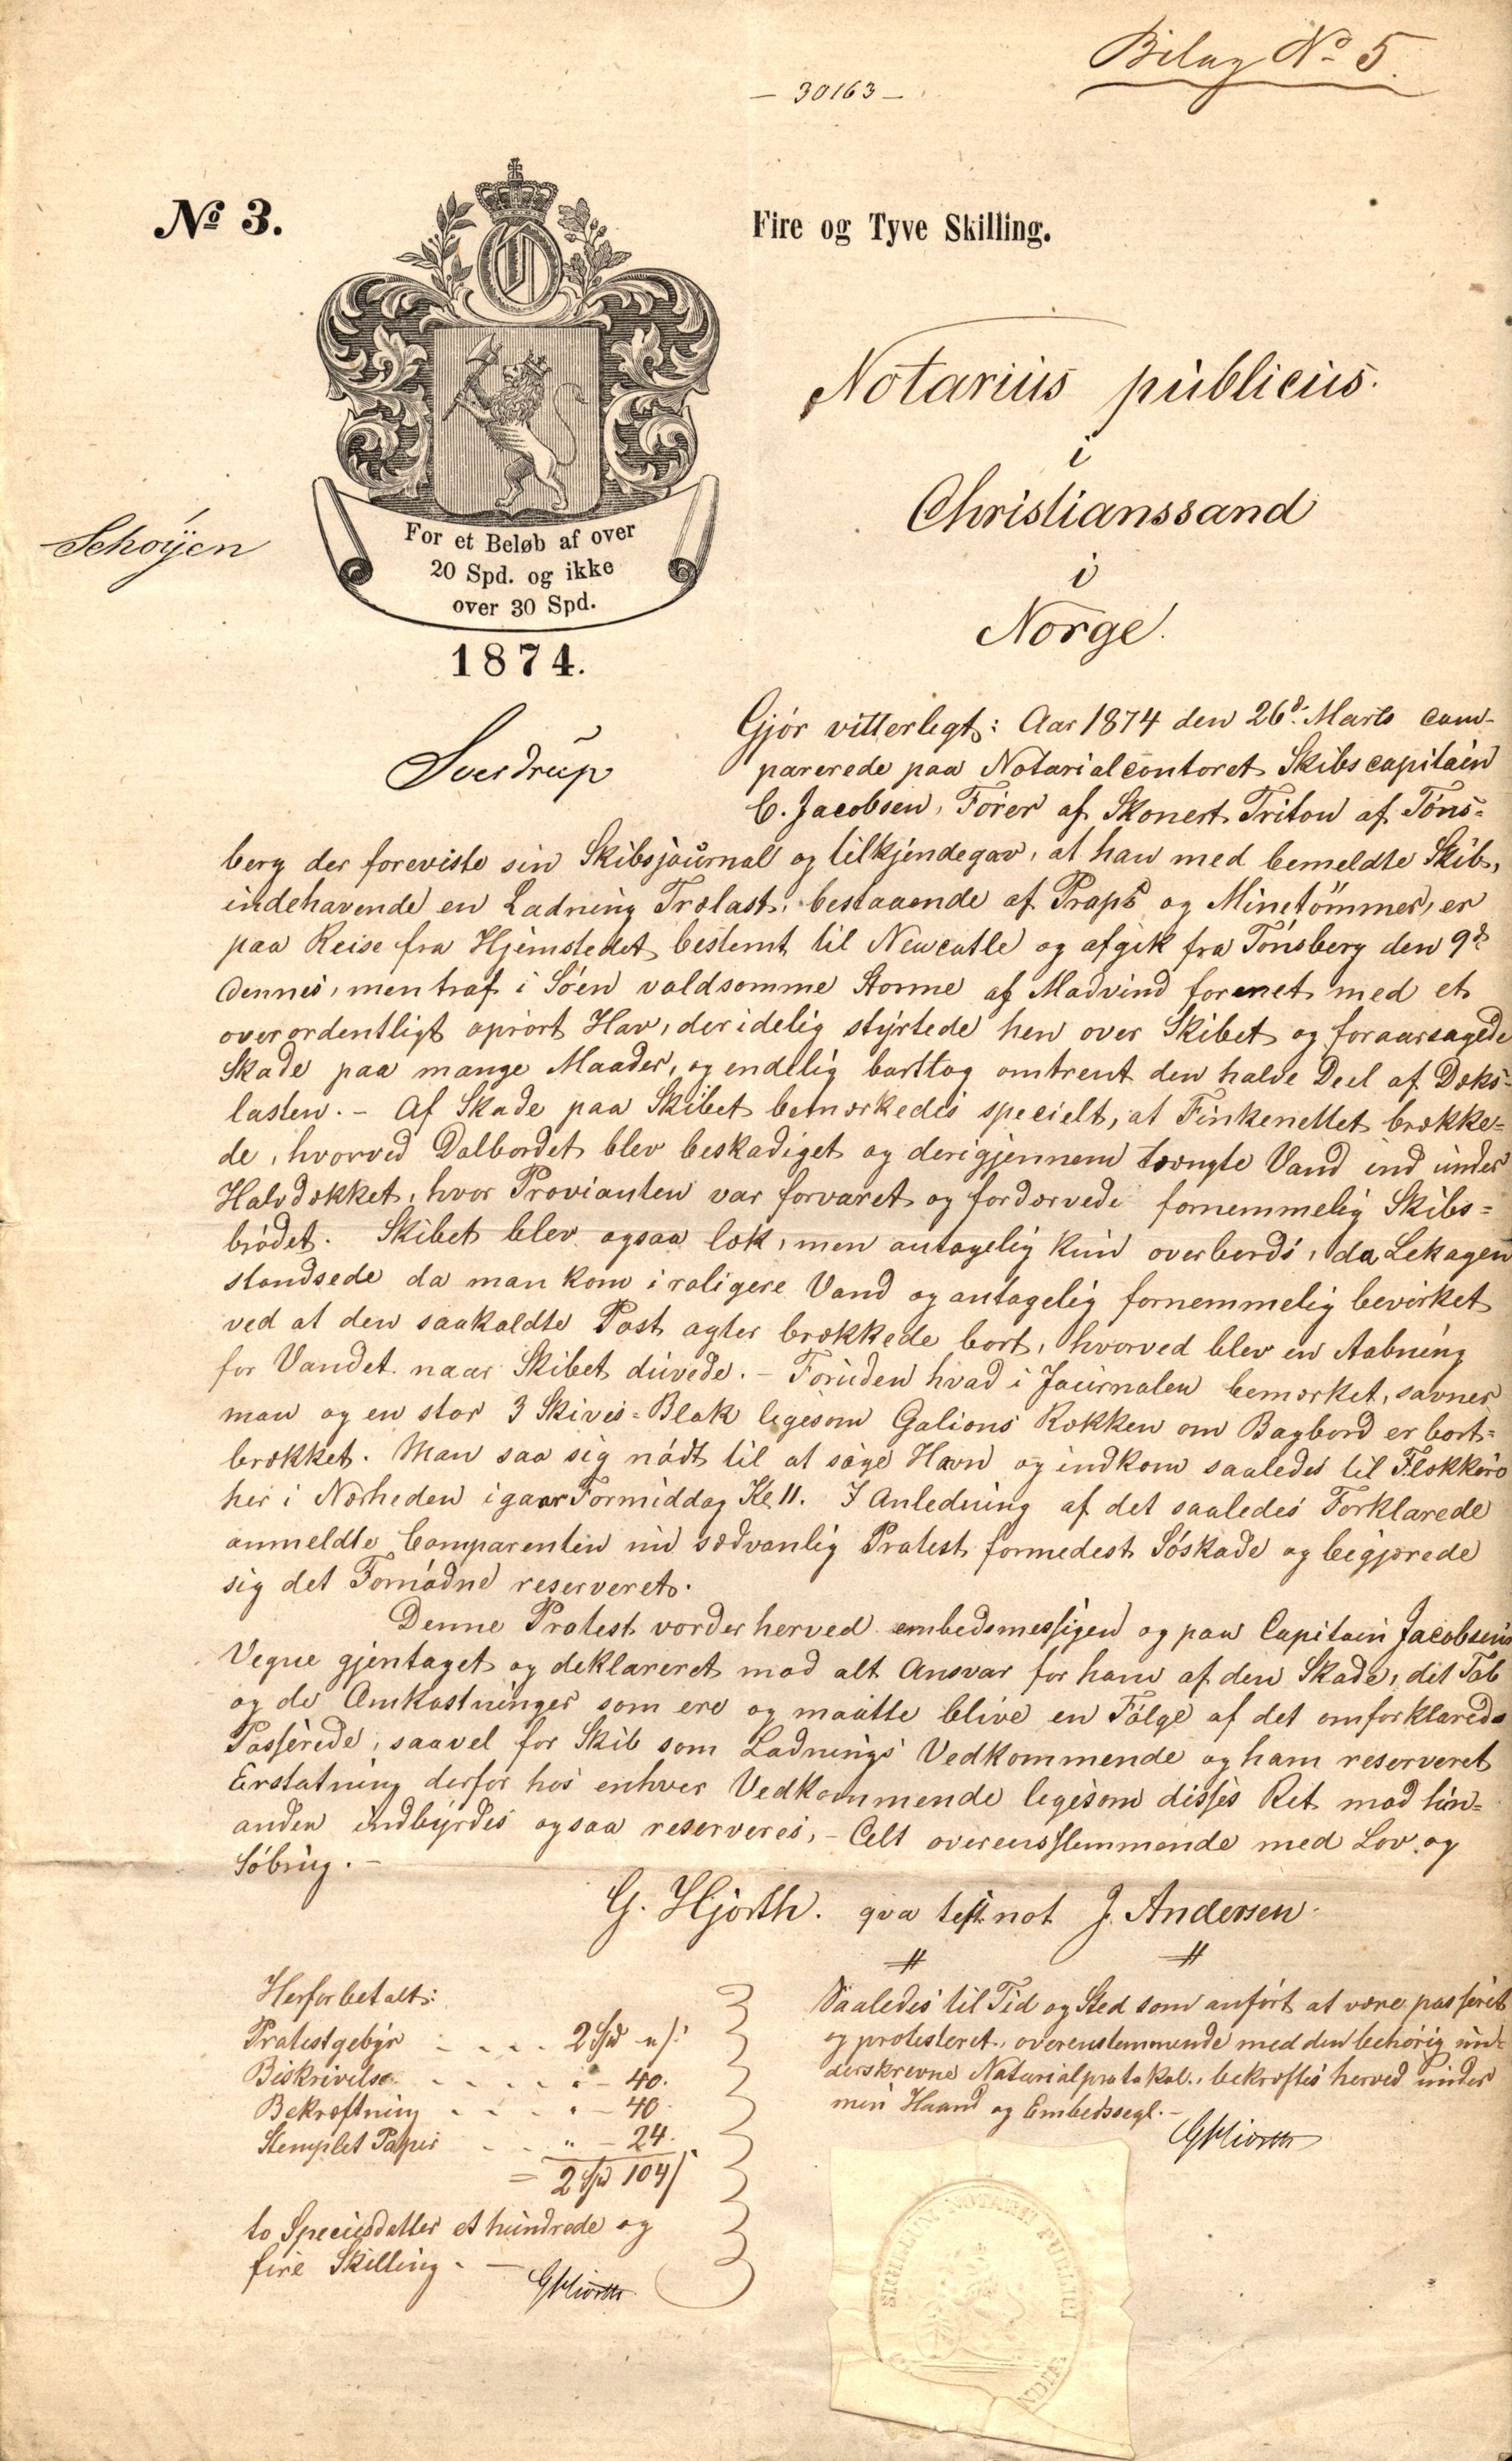 Bilag No 5.
- 30163 -
No 3.
Fire og Tyve Skilling.
Notarius publicus.
i
Christianssand
i
Norge.
For et Beløb af over
20 Spd. og ikke
over 30 Spd.
1874.
Schøÿen
Sverdrup
Gjör vitterligt: Aar 1874 den 26d. Marts com-
parerede paa Notarialcontoret Skibscapitain
C. Jacobsen, Förer af Skonert Triton af Töns-
berg der foreviste sin Skibsjournal og tilkjendegav, at han med bemeldte Skib,
indehavende en Ladning Trælast, bestaaende af Props og Minetömmer, er
paa Reise fra Hjemstedet bestemt til Newcatle og afgik fra Tönsberg den 9d.
dennes, men traf i Söen voldsomme Storme af Modvind forenet med et
overordentligt oprört Hav, der idelig styrtede hen over Skibet og foraarsagede
Skade paa mange Maader, og endelig borttog omtrent den halve Deel af Dæks-
lasten. - Af Skade paa Skibet bemærkedes specielt, at Finkenettet brække-
de, hvorved Dolbordet blev beskadiget og derigjennem trængte Vand ind under
Halvdækket, hvor Provianten var forvaret og fordærvede fornemmelig Skibs-
brödet. Skibet blev ogsaa læk, men antagelig kun overbords, da Lekagen
standsede da man kom i roligere Vand og antagelig fornemmelig bevirket
ved at den saakaldte Post agter brækkede bort, hvorved blev en Aabning
for Vandet naar Skibet duvede. - Foruden hvad i Journalen bemærket, savnes
man og en stor 3 Skives-Blok ligesom Galions Rækken om Bagbord er bort-
brækket. Man saa sig nödt til at söge Havn og indkom saaledes til Flekkerö
her i Nærheden igaar Formiddag Kl 11. I Anledning af det saaledes Forklarede
anmeldte Comparenten nu sædvanlig Protest formedest Söskade og begjærede
sig det Fornödne reserveret.
Denne Protest vorder herved embedsmessigen og paa Capitain Jacobsens
Vegne gjentaget og deklareret mod alt Ansvar for ham af den Skade, det Tab
og de Omkostninger som ere og maatte blive en Fölge af det omforklarede
Passerede, saavel for Skib som Ladnings Vedkommende og ham reserveret
Erstatning derfor hos enhver Vedkommende ligesom disses Ret mod hin-
anden indbyrdes ogsaa reserveres, - Alt overensstemmende med Lov og
Söbrug. -
G. Hjorth. qva test not J. Andersen.
Herfor betalt:
Protestgebyr . . . . 2 Spd " ß
Beskrivelse . . . . . " - 40.
Bekræftning . . . . " - 40.
Stemplet Papir . . . " - 24.
= 2 Spd 104 ß
to Speciesdaller et hundrede og
fire Skilling. -
GHiorth
Saaledes til Tid og Sted som anfört at være passeret
og protesteret, overenstemmende med den behörig un-
derskrevne Notarialprotokol, bekræftes herved under
min Haand og Embedssegl. -
GHiorth
SIGILLUM NOTARII PUBLICI